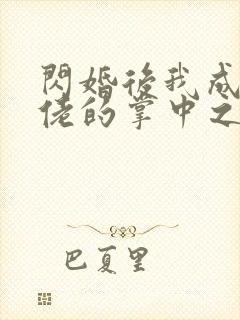 閃婚後我成
佬的掌中之
巴夏里